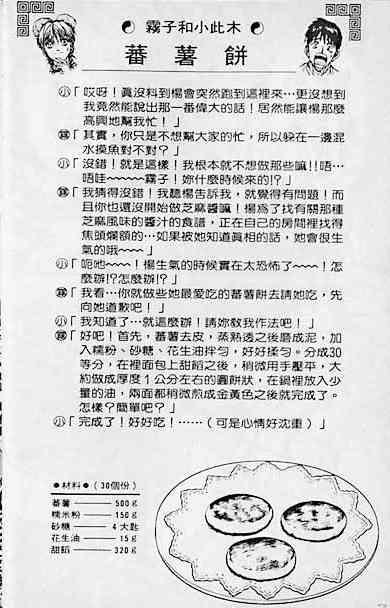 霧子和小此木
蕃薯餅
小「哎呀！真沒料到楊會突然跑到這裡來…更沒想到
我竟然能說出那一番偉大的話！居然能讓楊那麼
高興地幫我忙！」
霧「其實，你只是不想幫大家的忙，所以躲在一邊混
水摸魚對不對？」
小「沒錯！就是這樣！我根本就不想做那些嘛!!唔…
唔哇~~~~霧子！妳什麼時候來的!?」
霧「我猜得沒錯！我聽楊告訴我，就覺得有問題！而
且你也還沒開始做芝麻醬嘛！楊為了找有關那種
芝麻風味的醬汁的食譜，正在自己的房間裡找得
焦頭爛額的…如果被她知道真相的話，她會很生
氣的哦~~~」
小「呃呃~~~！楊生氣的時候實在太恐怖了~~~！怎
麼辦!?怎麼辦!?」
霧「我看…你就做些她最愛吃的蕃薯餅去請她吃，先
向她道歉吧！」
小「我知道了…就這麼辦！請妳教我作法吧！」
霧「好吧！首先，蕃薯去皮，蒸熟透之後磨成泥，加
入糯粉、砂糖、花生油拌勻，好好揉勻。分成30
等分，在裡面包上甜餡之後，稍微用手壓平，大
約做成厚度1公分左右的圓餅狀，在鍋裡放入少
量的油，兩面都稍微煎成金黃色之後就完成了。
怎樣？簡單吧？」
小「完成了！好好吃！……（可是心情好沈重）」
●材料●（30個份）
蕃薯——500g
糯米粉——150g
砂糖——4大匙
花生油——15g
甜餡——320g